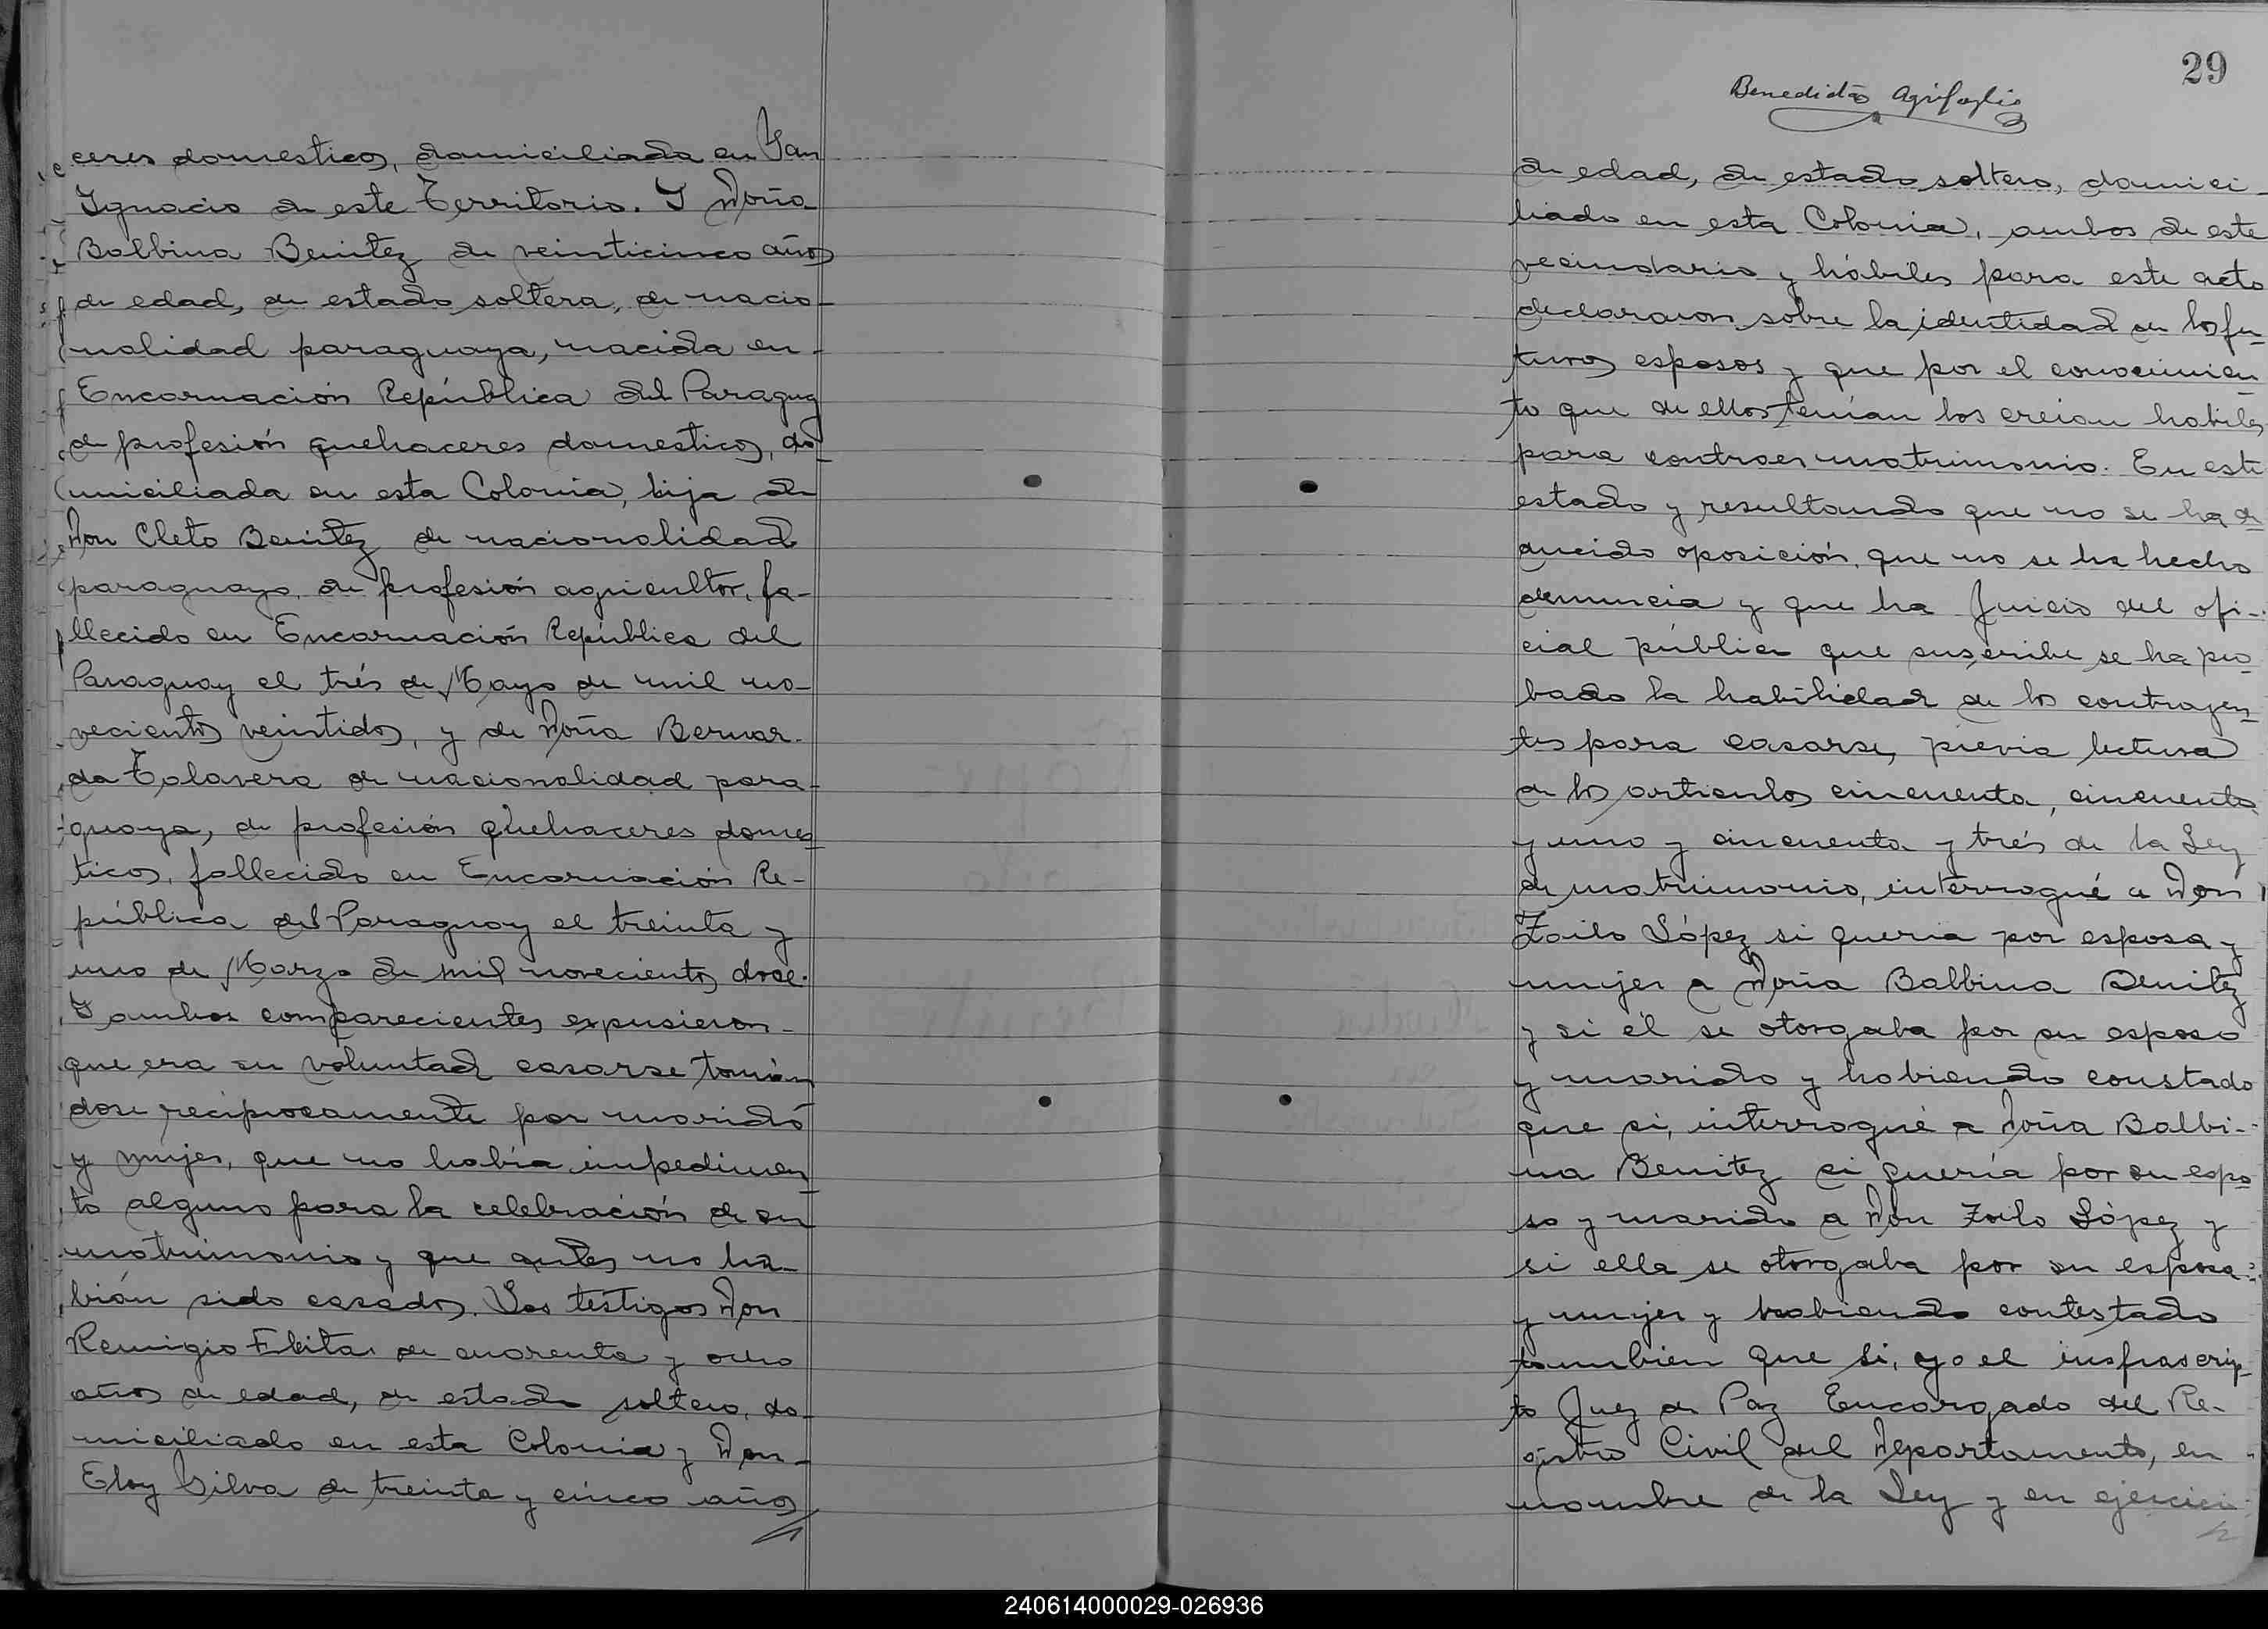 ceres domesticos, domiciliada en San
Ignacio de este Territorio. Y Doña
Balbina Benitez de veinticinco años
de edad, de estado soltera, de nacio-
nalidad paraguaya, nacida en
Encarnación República del Paraguay
de profesión quehaceres domesticos, do-
miciliada en esta Colonia, hija de
Don Cleto Benitez de nacionalidad
paraguayo, de profesión agricultor, fa-
llecido en Encarnación República del
Paraguay el trés de Mayo de mil no-
vecientos veintidos, y de Doña Bernar-
da Talavera de nacionalidad para-
guaya, de profesión quehaceres domes-
ticos, fallecido en Encarnación Re-
pública del Paraguay el treinta y
uno de Marzo de mil novecientos doce.
Y ambos comparecientes expusieron
que era su voluntad casarse tomán
dose reciprocamente por marido
y mujer, que no había impedimen-
to alguno para la celebración de su
matrimonio y que antes no ha-
bián sido casados. Los testigos Don
Remigio de cuarenta y ocho
años de edad, de estado soltero, do-
miciliado en esta Colonia y Don
Eloy Silva de treinta y cinco años
29
Benedicto Agrifoglio
de edad, de estado soltero, domici-
liado en esta Colonia, ambos de este
vecindario y hábiles para este acto
declararon sobre la identidad de los fu-
turos esposos y que por el conocimien
to que de ellos tenían los creian habiles
para contraer matrimonio. En este
estado y resultando que no se ha de-
ducido oposición, que no se ha hecho
denuncia y que ha Juicio del ofi-
cial público que suscribe se ha pro-
bado la habilidad de los contrayen-
tes para casarse, previa lectura
de los articulos cincuenta, cincuenta
y uno y cincuenta y trés de la Ley
de matrimonio, interrogué a Don
Zoilo López si queria por esposa y
mujer a Doña Balbina Benitez
y si él se otorgaba por su esposo
y marido y habiendo constado
que si, interrogué a Doña Balbi-
na Benitez si quería por su espo-
so y marido a Don Zoilo López y
si ella se otorgaba por su esposa
y mujer y habiendo contestado
tambien que si, yo el infrascrip-
to Juez de Paz Encargado del Re-
gistro Civil del Departamento, en
nombre de la Ley y en ejercici
240614000029-026936